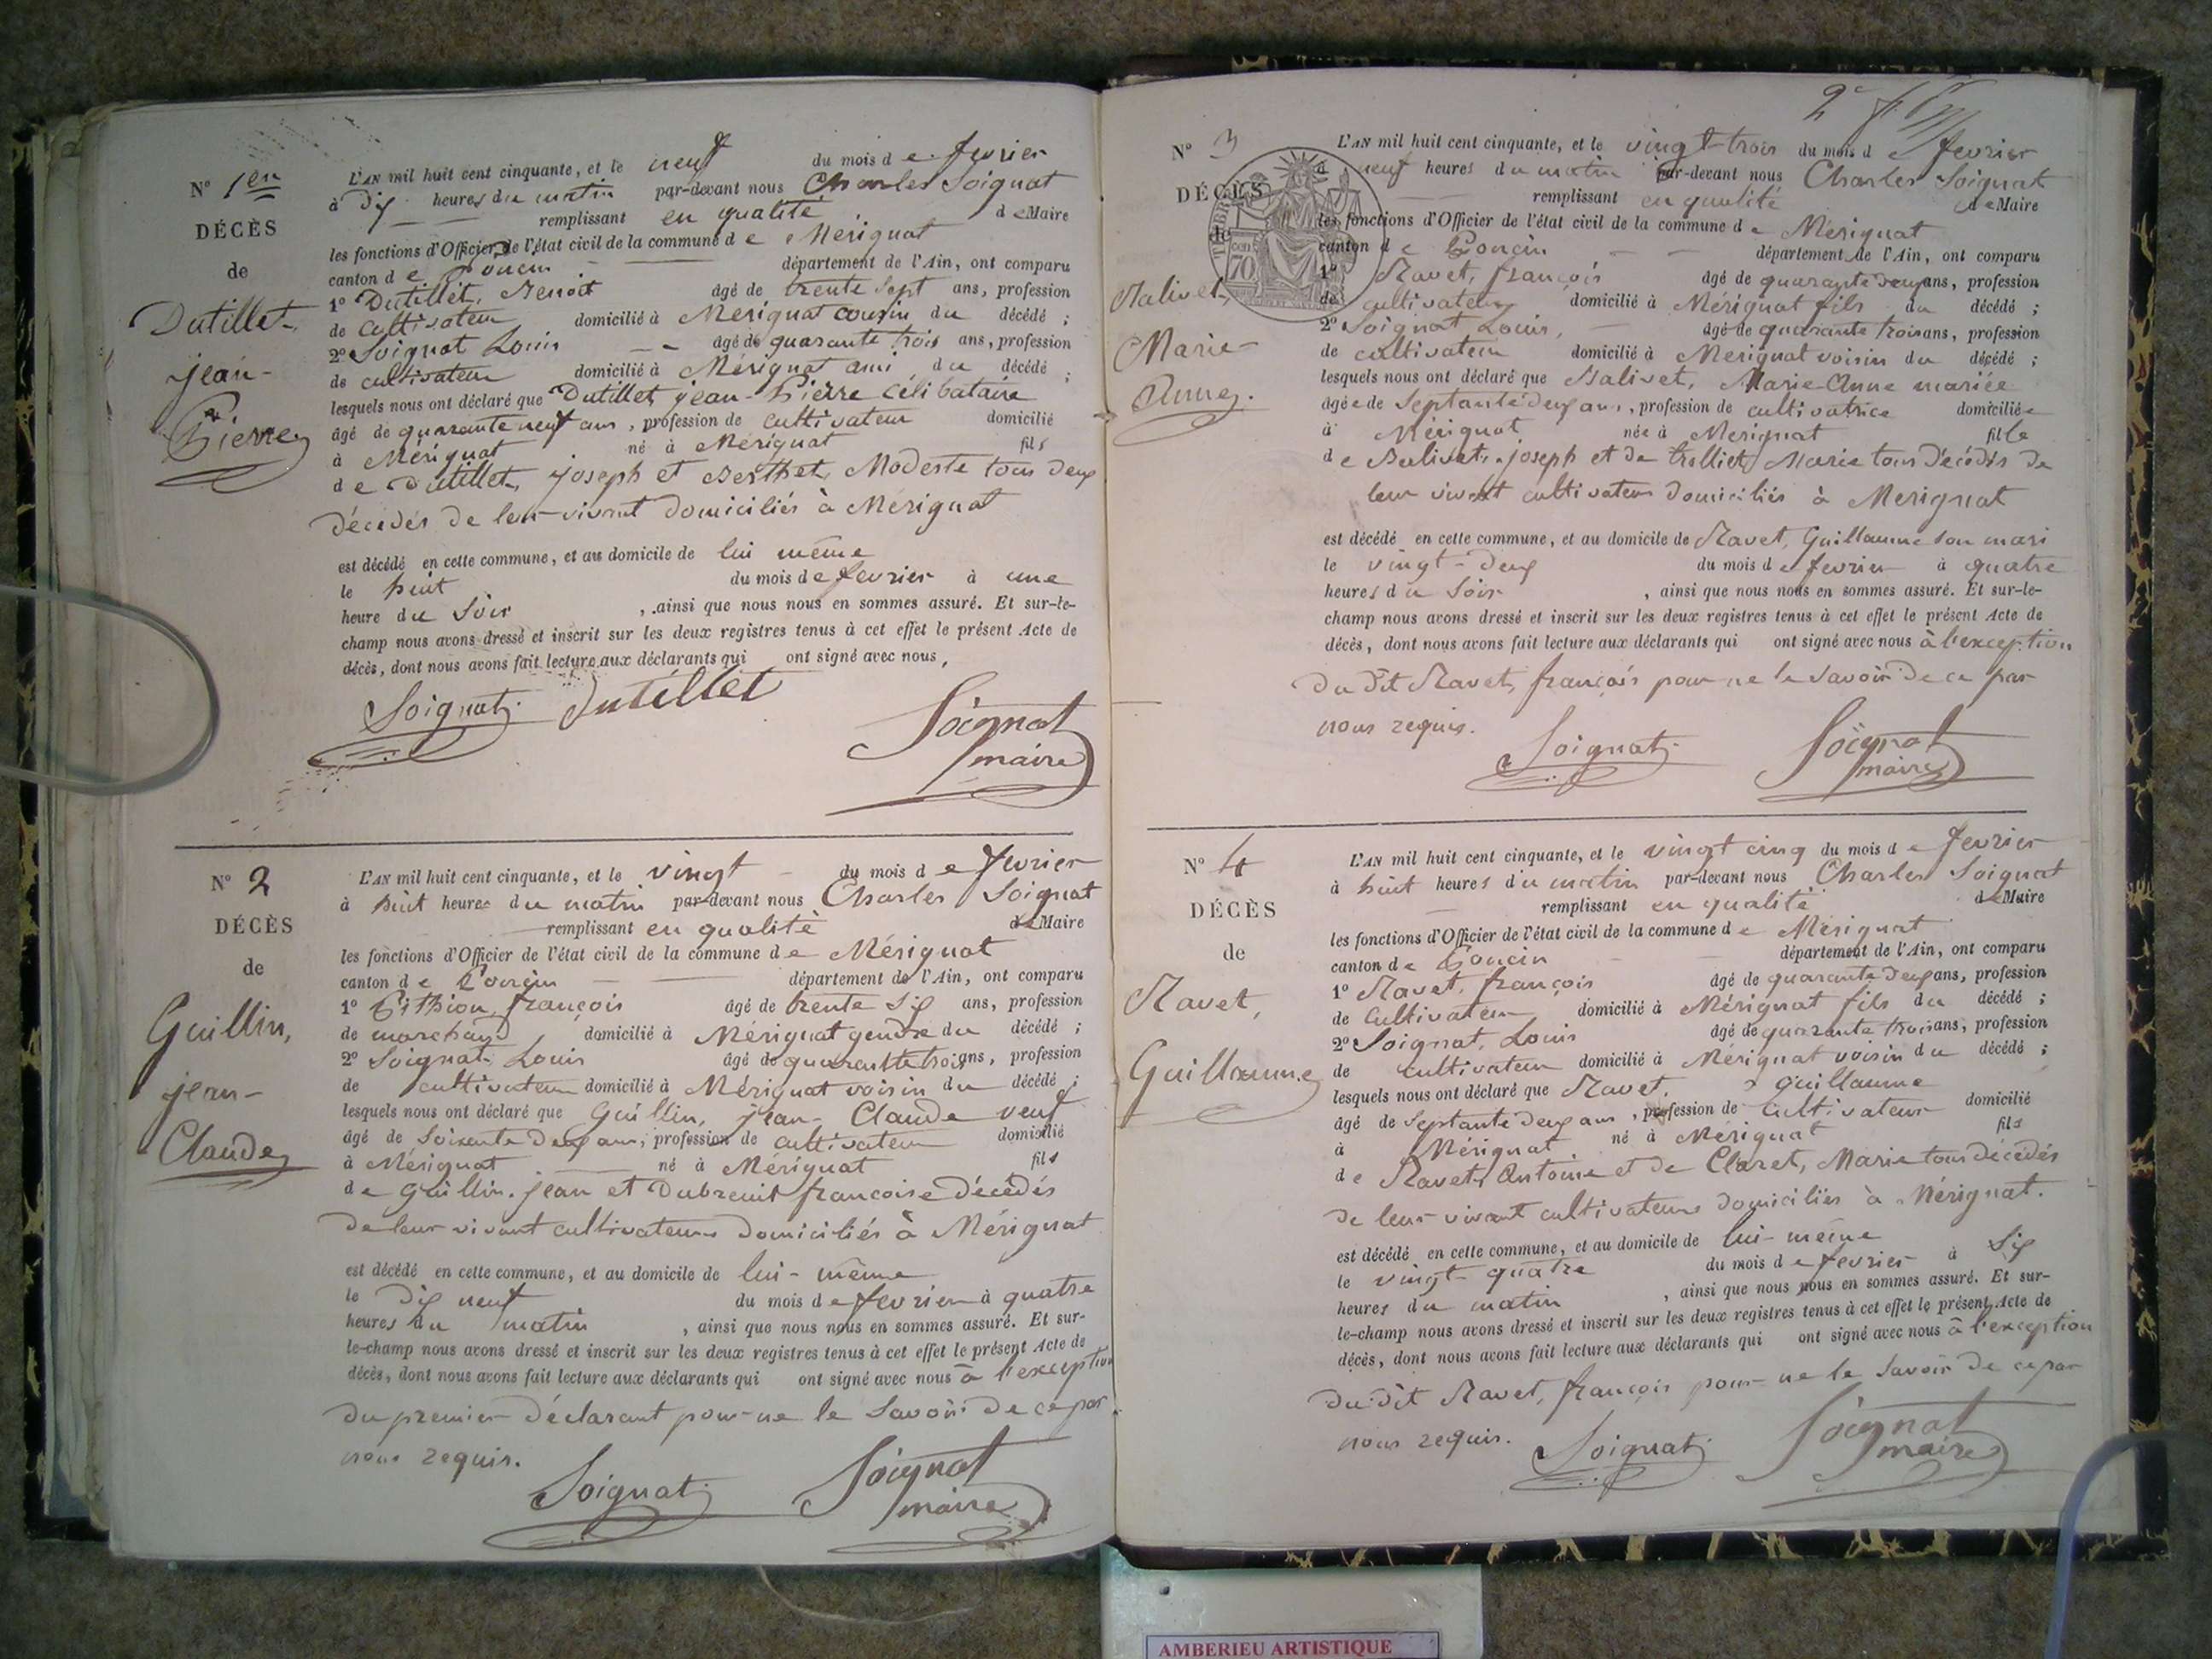 N° 1er
DÉCÈS
de
Dutillet,
jean-
Pierre
L'AN mil huit cent cinquante, et le neuf du mois de fevrier
à dix heures du matin par-devant nous Charles Soignat
remplissant en qualité de Maire
les fonctions d'Officier de l'état civil de la commune de Mérignat
canton de Poncin département de l'Ain, ont comparu
1° Dutillet, Benoit âgé de trente sept ans, profession
de cultivateur domicilié à Mérignat cousin du décédé ;
2° Soignat Louis âgé de quarante trois ans, profession
de cultivateur domicilié à Mérignat ami du décédé ;
lesquels nous ont déclaré que Dutillet, jean-Pierre célibataire
âgé de quarante neuf ans, profession de cultivateur domicilié
à Mérignat né à Mérignat fils
de Dutillet, joseph et Berthet, Modeste tous deux
décédés de leur vivant domiciliés à Mérignat
est décédé en cette commune, et au domicile de lui même
le huit du mois de fevrier à une
heure du soir , ainsi que nous nous en sommes assuré. Et sur-le-
champ nous avons dressé et inscrit sur les deux registres tenus à cet effet le présent Acte de
décès, dont nous avons fait lecture aux déclarants qui ont signé avec nous,
Soignat Dutillet Soignat
maire
N° 2
DÉCÈS
de
Guillin,
jean-
Claude
L'AN mil huit cent cinquante, et le vingt du mois de fevrier
à huit heures du matin par-devant nous Charles Soignat
remplissant en qualité de Maire
les fonctions d'Officier de l'état civil de la commune de Mérignat
canton de Poncin département de l'Ain, ont comparu
1° Pithion, françois âgé de trente six ans, profession
de marchand domicilié à Mérignat gendre du décédé ;
2° Soignat, Louis âgé de quarante trois ans, profession
de cultivateur domicilié à Mérignat voisin du décédé ;
lesquels nous ont déclaré que Guillin, jean-Claude veuf
âgé de soixante deux ans, profession de cultivateur domicilié
à Mérignat né à Mérignat fils
de Guillin, jean et Dubreuit françoise décédés
de leur vivant cultivateurs domiciliés à Mérignat
est décédé en cette commune, et au domicile de lui-même
le dix neuf du mois de fevrier à quatre
heures du matin , ainsi que nous nous en sommes assuré. Et sur-
le-champ nous avons dressé et inscrit sur les deux registres tenus à cet effet le présent Acte de
décès, dont nous avons fait lecture aux déclarants qui ont signé avec nous à l'exception
du premier déclarant pour ne le savoir de ce par
nous requis.
Soignat Soignat
maire
2e
N° 3
DÉCÈS
de
Balivet,
Marie-
Anne.
L'AN mil huit cent cinquante, et le vingt-trois du mois de fevrier
à neuf heures du matin par-devant nous Charles Soignat
remplissant en qualité de Maire
les fonctions d'Officier de l'état civil de la commune de Mérignat
canton de Poncin département de l'Ain, ont comparu
1° Ravet, françois âgé de quarante deux ans, profession
de cultivateur domicilié à Mérignat fils du décédé ;
2° Soignat Louis, âgé de quarante trois ans, profession
de cultivateur domicilié à Merignat voisin du décédé ;
lesquels nous ont déclaré que Balivet, Marie-Anne mariée
âgée de septante deux ans, profession de cultivatrice domiciliée
à Mérignat née à Merignat fille
de Balivet, joseph et de trolliet, Marie tous décédés de
leur vivant cultivateurs domiciliés à Merignat
est décédé en cette commune, et au domicile de Ravet, Guillaume son mari
le vingt-deux du mois de fevrier à quatre
heures du soir , ainsi que nous nous en sommes assuré. Et sur-le-
champ nous avons dressé et inscrit sur les deux registres tenus à cet effet le présent Acte de
décès, dont nous avons fait lecture aux déclarants qui ont signé avec nous à l'exception
du dit Ravet, françois pour ne le savoir de ce par
nous requis.
Soignat Soignat
maire
N° 4
DÉCÈS
de
Ravet,
Guillaume
L'AN mil huit cent cinquante, et le vingt cinq du mois de fevrier
à huit heures du matin par-devant nous Charles Soignat
remplissant en qualité de Maire
les fonctions d'Officier de l'état civil de la commune de Mérignat
canton de Poncin département de l'Ain, ont comparu
1° Ravet, françois âgé de quarante deux ans, profession
de cultivateur domicilié à Mérignat fils du décédé ;
2° Soignat, Louis âgé de quarante trois ans, profession
de cultivateur domicilié à Mérignat voisin du décédé ;
lesquels nous ont déclaré que Ravet, Guillaume
âgé de septante deux ans, profession de cultivateur domicilié
à Mérignat né à Mérignat fils
de Ravet, Antoine et de Claret, Marie tous décédés
de leur vivant cultivateurs domiciliés à Mérignat.
est décédé en cette commune, et au domicile de lui-même
le vingt-quatre du mois de fevrier à six
heures du matin , ainsi que nous nous en sommes assuré. Et sur-
le-champ nous avons dressé et inscrit sur les deux registres tenus à cet effet le présent Acte de
décès, dont nous avons fait lecture aux déclarants qui ont signé avec nous à l'exception
du dit Ravet, françois pour ne le savoir de ce par
nous requis.
Soignat Soignat
maire
AMBERIEU ARTISTIQUE